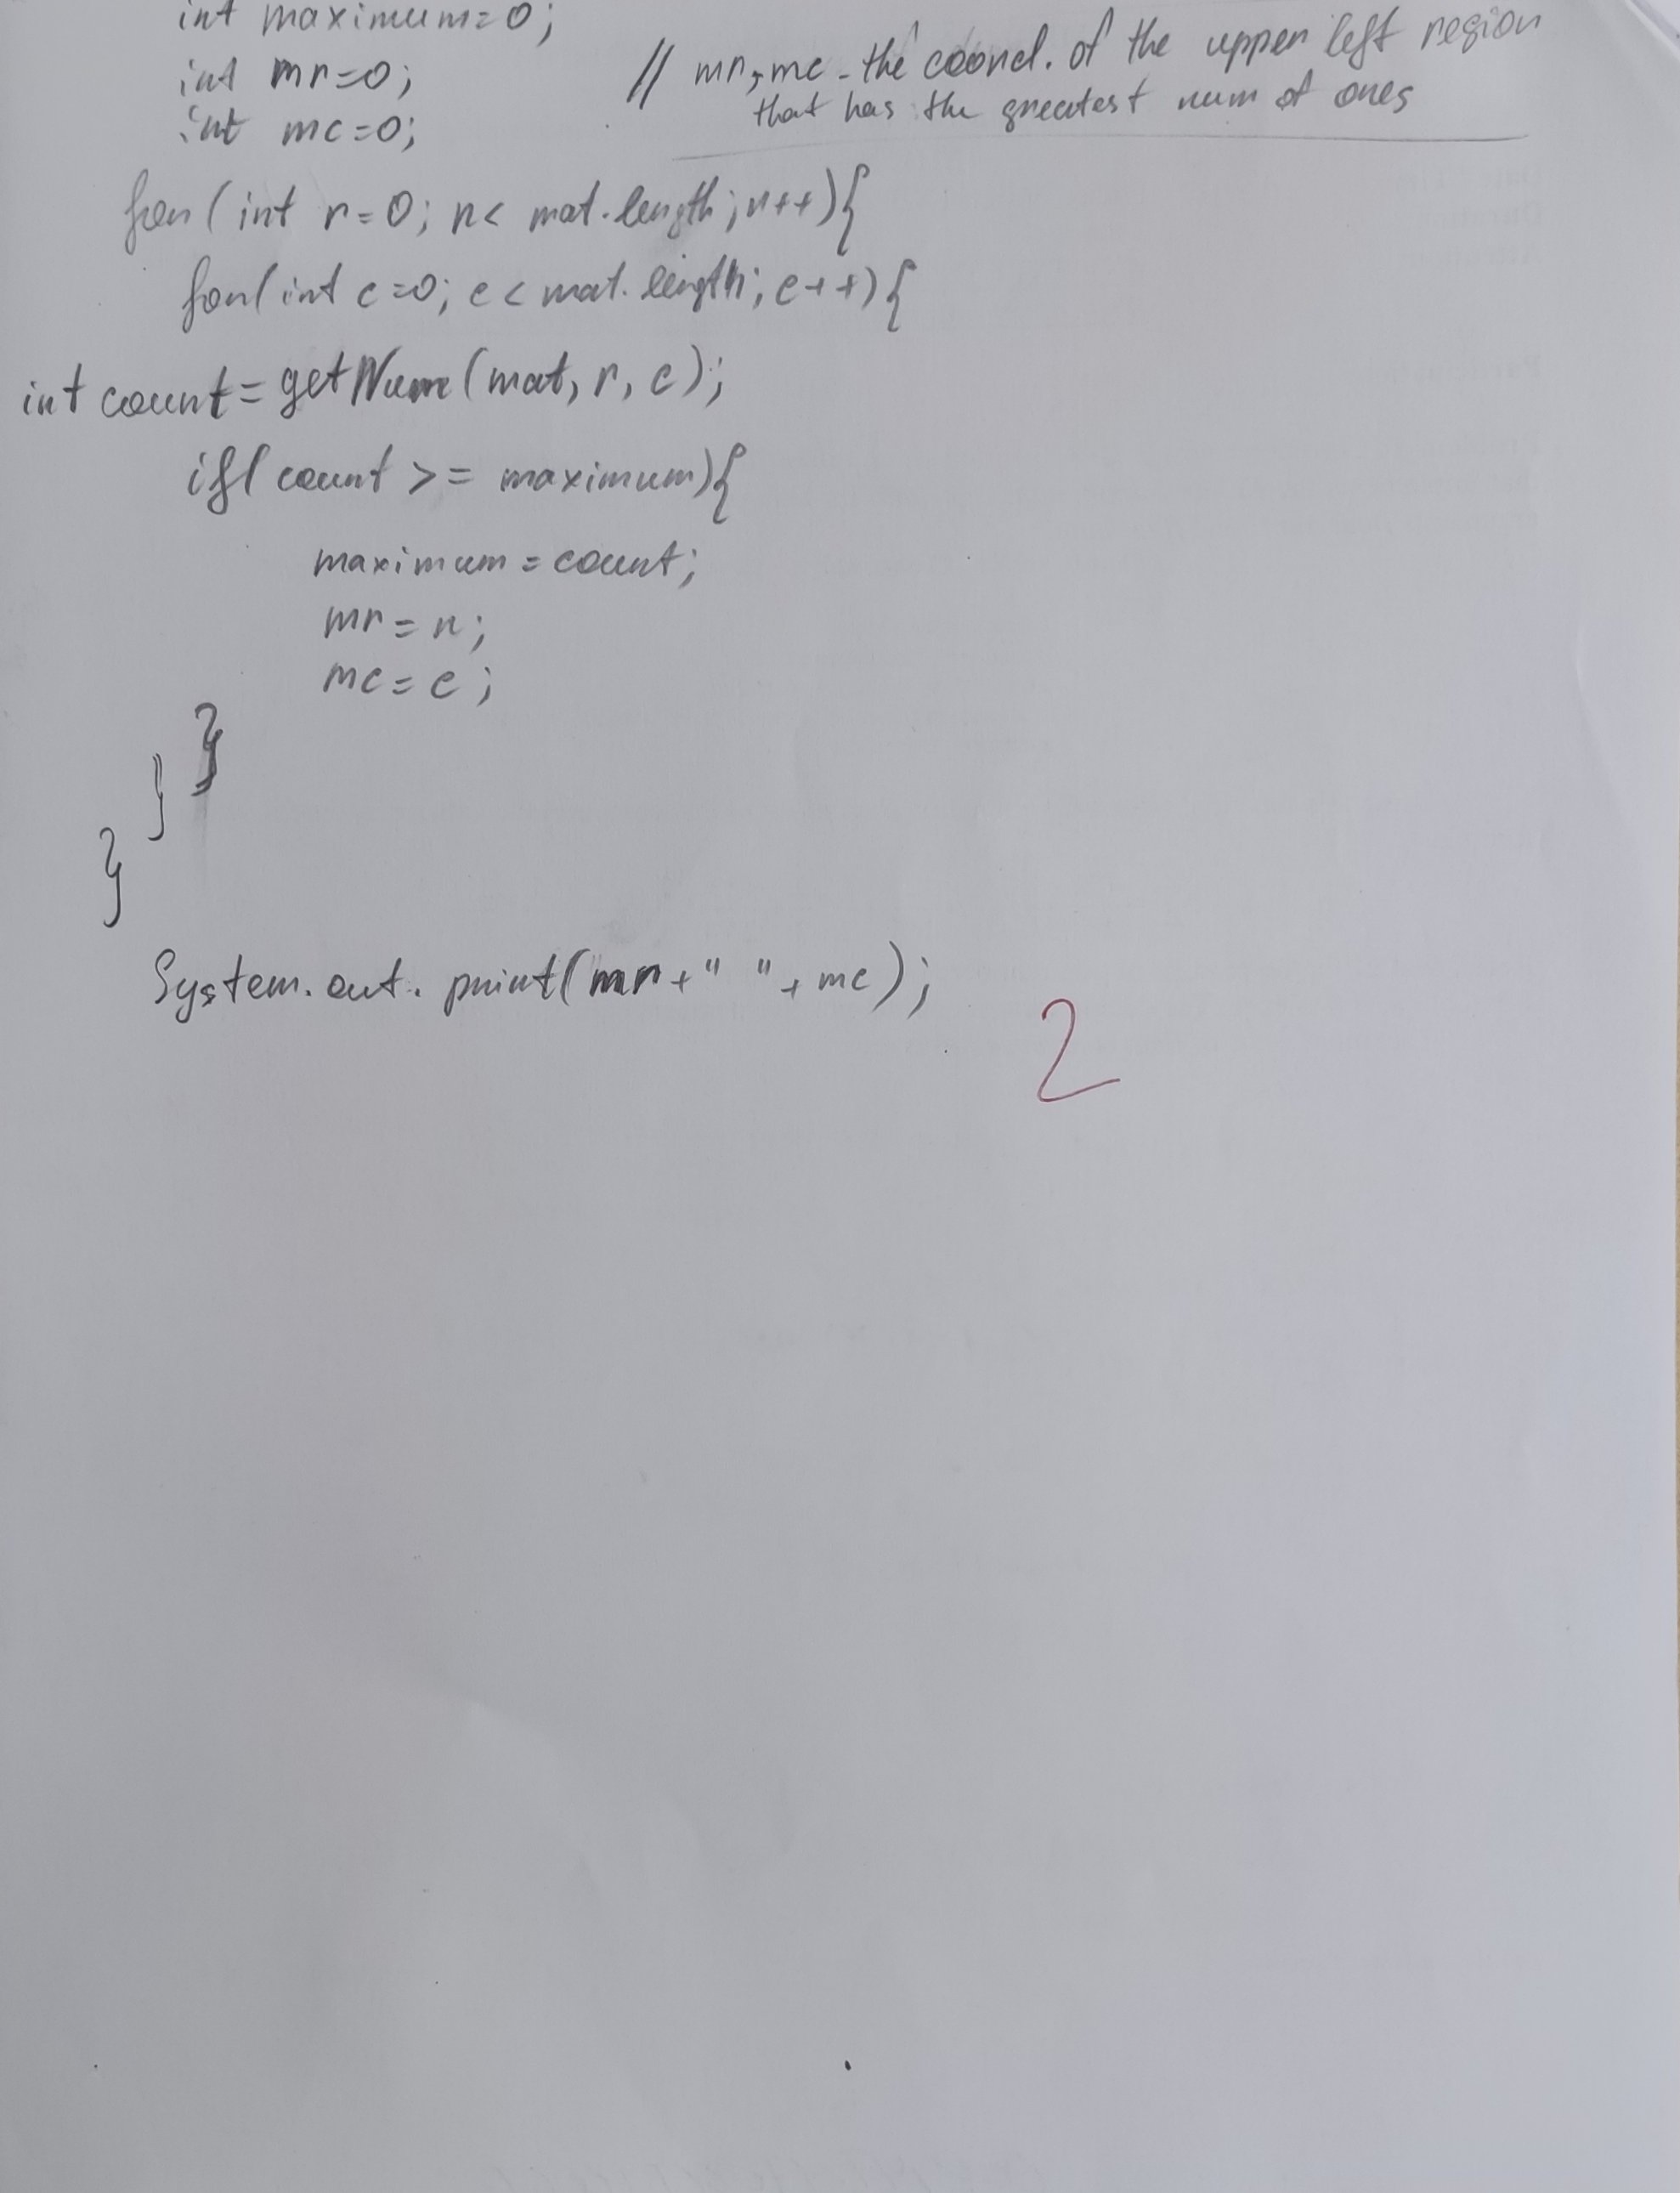 int maximum=0;
int mr=0;
int mc=0;
// mr, mc - the coord. of the upper left region
that has the greatest num of ones
for(int r=0; r< mat.length; r++){
for(int c=0; c< mat.length; c++){
int count=getNum(mat, r, c);
if(count >= maximum){
maximum=count;
mr=r;
mc=c;
}
}
}
System.out.print(mr+" "+mc);
2